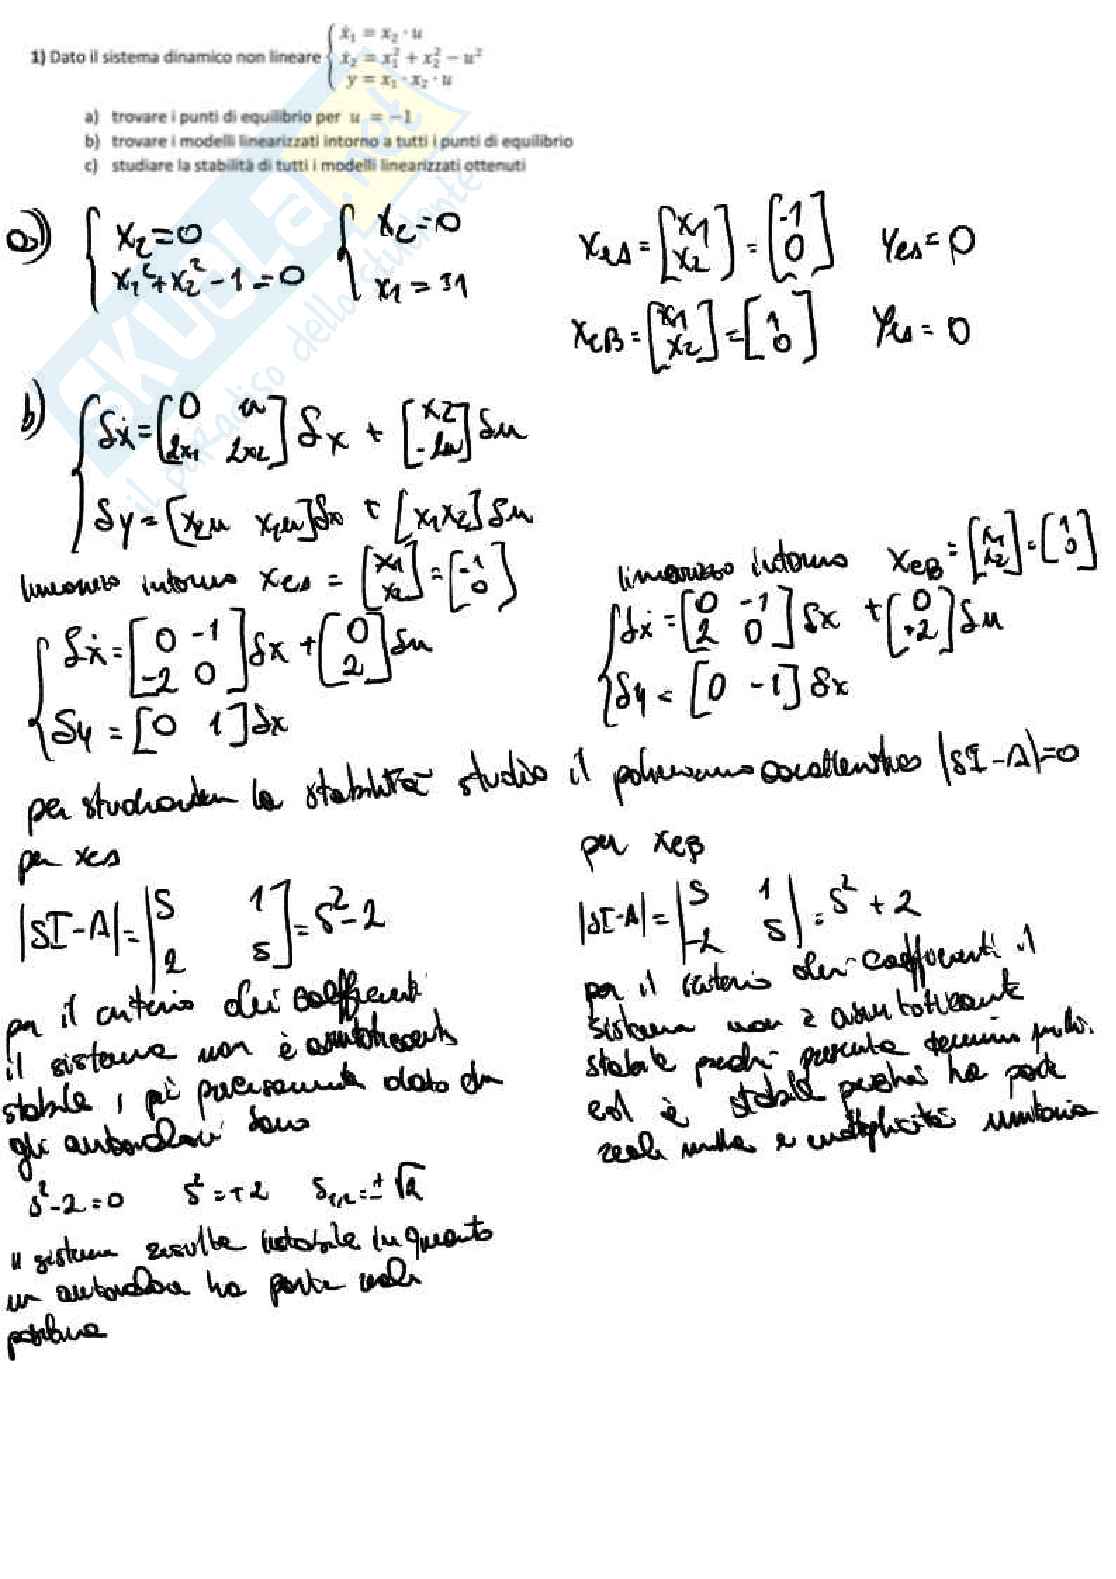 1) Dato il sistema dinamico non lineare { ẋ₁ = x₂ · u
ẋ₂ = x₁² + x₂² − u²
y = x₁ · x₂ · u
a) trovare i punti di equilibrio per u = −1
b) trovare i modelli linearizzati intorno a tutti i punti di equilibrio
c) studiare la stabilità di tutti i modelli linearizzati ottenuti
SKUOLA.net
il paradiso dello studente
a) { x₂=0 { x₂=0 xeA = [x1 x2] = [-1 0] yeA = 0
x₁²+x₂²-1=0 x1 = ±1
xeB = [x1 x2] = [1 0] = 0
b) { δẋ = [0 u; 2x₁ 2x₂] δx + [x2; -2u] δu
δy = [x₂u x₁u] δx + [x₁x₂] δu
linearizzo intorno xeA = [x1 x2] = [-1 0]
{ δẋ = [0 -1; -2 0] δx + [0; 2] δu
δy = [0 1] δx
linearizzo intorno xeB = [x1 x2] = [1 0]
{ δẋ = [0 -1; 2 0] δx + [0; +2] δu
δy = [0 -1] δx
per la stabilità studio il polinomio caratteristico |sI-A|=0
per xeA
|sI-A| = |s 1; 2 s| = s²-2
per il criterio dei coefficienti
il sistema non è asintoticamente
stabile, più precisamente dato che
gli autovalori sono
s²-2=0 s²=+2 s1/2=±√2
il sistema risulta instabile in quanto
un autovalore ha parte reale
positiva
per xeB
|sI-A| = |s 1; -2 s| = s² + 2
per il criterio dei coefficienti il
sistema non è asintoticamente
stabile presenta termini nulli.
ed è stabile perché ha parte
reale nulla e molteplicità unitaria